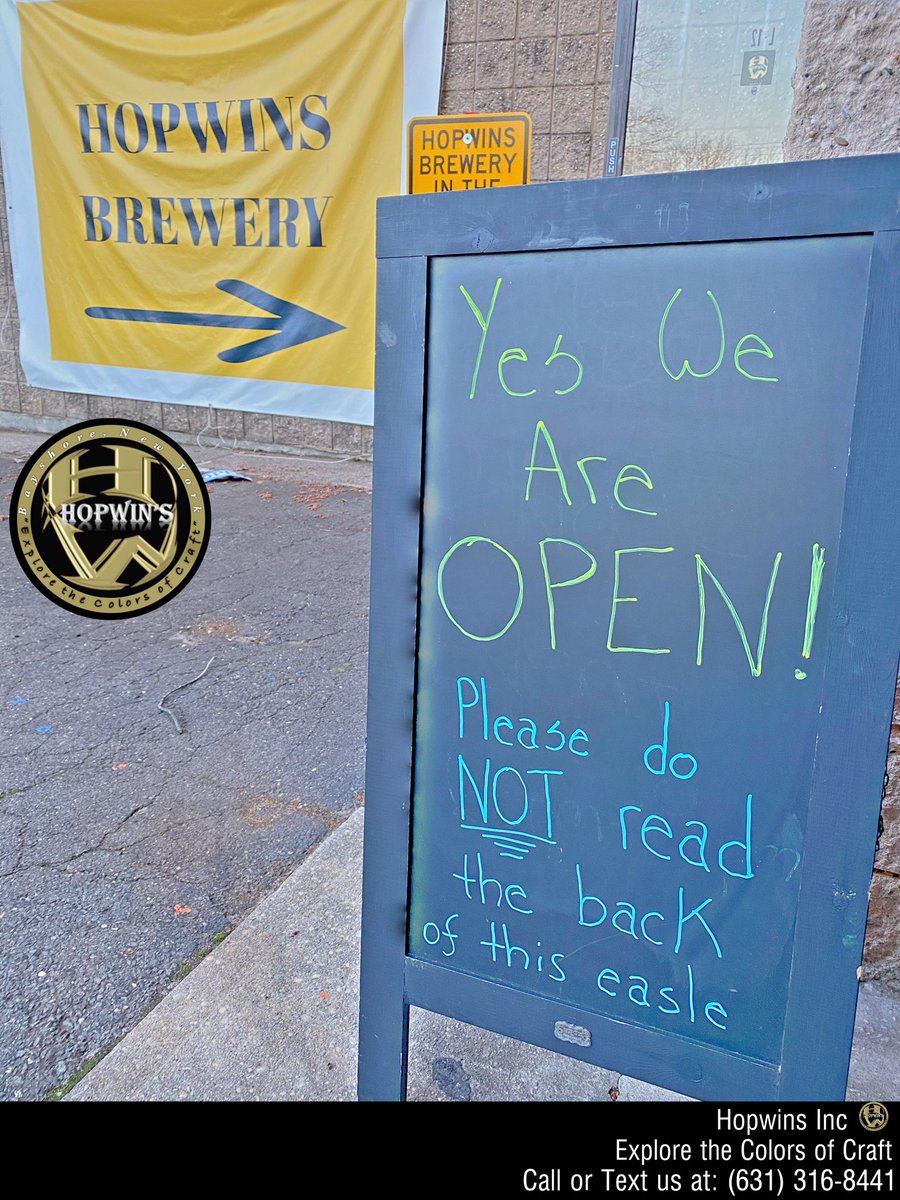 HOPWINS
BREWERY
HOPWINS
BREWERY
IN THE
PUSH
L-12
Yes We
Are
OPEN!
Please do
NOT read
the back
of this easle
Bayshore, New York
HOPWIN'S
"Explore the Colors of Craft"
Hopwins Inc
Explore the Colors of Craft
Call or Text us at: (631) 316-8441